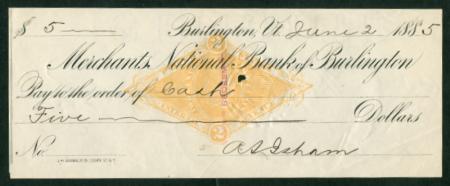 $ 5 Burlington, Vt. June 2 1885
Merchants National Bank of Burlington
Pay to the order of Cash
Five Dollars
No. A S Isham
2
2